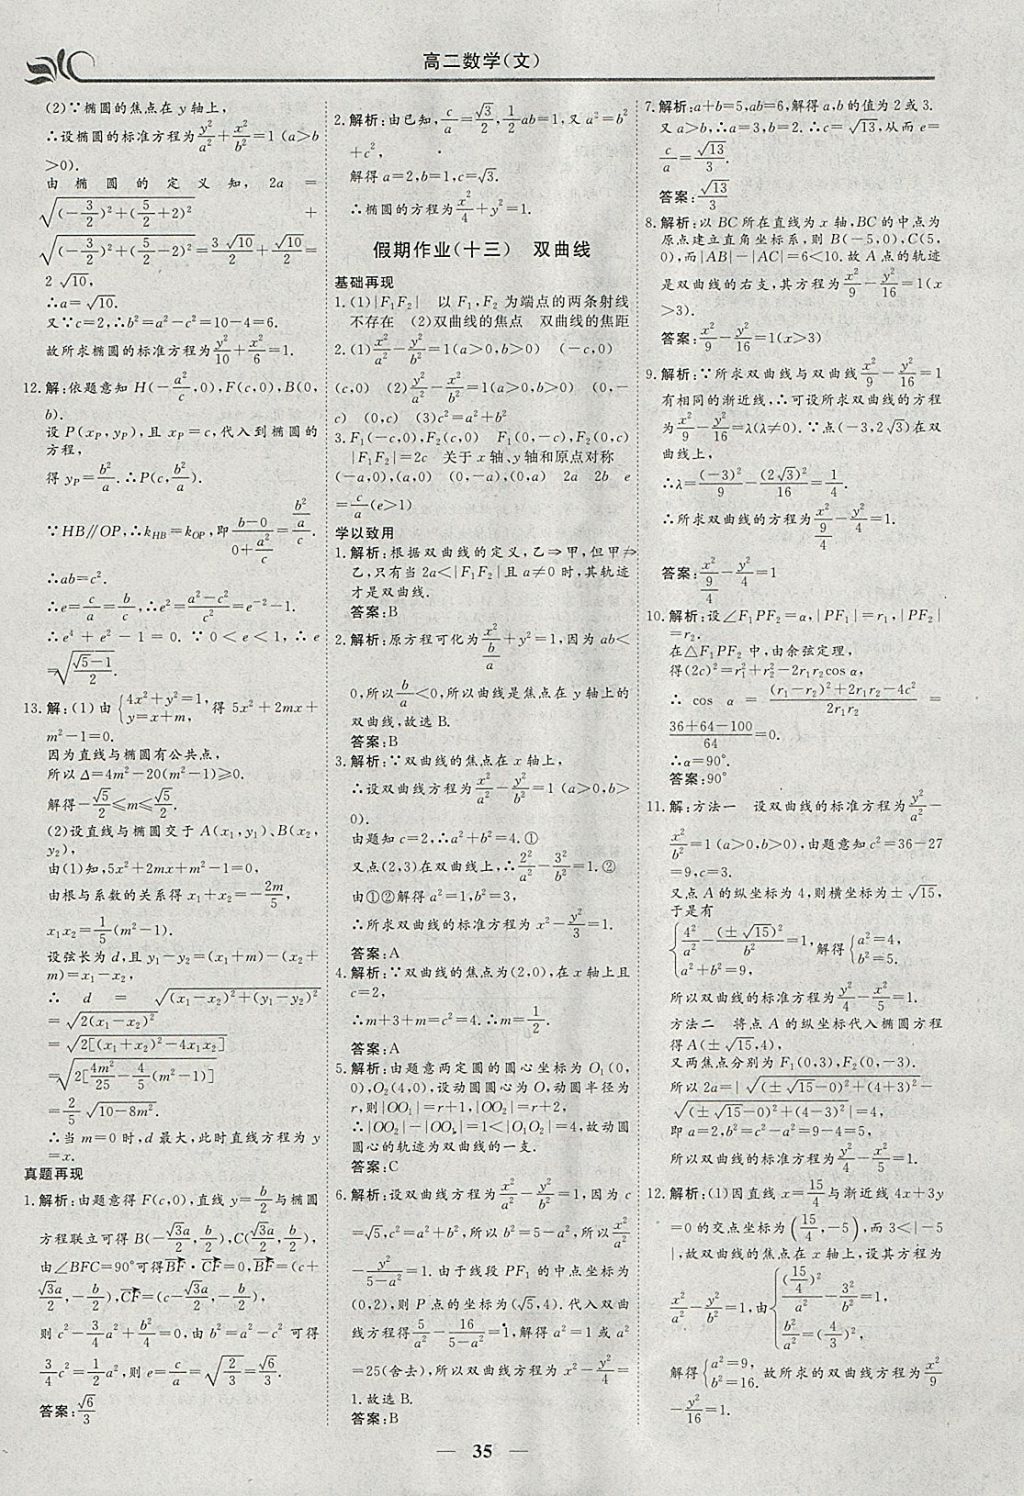 高二数学(文)
(2)∵椭圆的焦点在y轴上,
∴设椭圆的标准方程为y²/a²+x²/b²=1 (a>b
>0).
由椭圆的定义知, 2a=
√((-3/2)²+(5/2+2)²) +
√((-3/2)²+(5/2-2)²)=3√10/2+√10/2=
2√10,
∴a=√10.
又∵c=2,∴b²=a²-c²=10-4=6.
故所求椭圆的标准方程为y²/10+x²/6=1.
12.解:依题意知 H(-a²/c,0),F(c,0),B(0,
b).
设 P(x_P,y_P),且 x_P=c,代入到椭圆的
方程,
得 y_P=b²/a.∴P(c,b²/a).
∵HB∥OP,∴k_HB=k_OP,即(b-0)/(0+a²/c)=(b²/a)/c.
∴ab=c².
∴e=c/a=b/c,∴e²=(a²-c²)/c²=e⁻²-1.
∴e⁴+e²-1=0.∵0<e<1,∴e
=√((√5-1)/2).
13.解:(1)由{4x²+y²=1, y=x+m, 得 5x²+2mx+
m²-1=0.
因为直线与椭圆有公共点,
所以 Δ=4m²-20(m²-1)≥0.
解得-√5/2≤m≤√5/2.
(2)设直线与椭圆交于 A(x₁,y₁)、B(x₂,
y₂),
由(1)知,5x²+2mx+m²-1=0,
由根与系数的关系得 x₁+x₂=-2m/5,
x₁x₂=1/5(m²-1).
设弦长为d,且y₁-y₂=(x₁+m)-(x₂+
m)=x₁-x₂,
∴ d = √((x₁-x₂)²+(y₁-y₂)²)
=√(2(x₁-x₂)²)
=√(2[(x₁+x₂)²-4x₁x₂])
=√(2[4m²/25-4/5(m²-1)])
=2/5√(10-8m²).
∴当 m=0时,d最大,此时直线方程为 y
=x.
真题再现
1.解析:由题意得 F(c,0),直线 y=b/2与椭圆
方程联立可得 B(-√3a/2,b/2),C(√3a/2,b/2),
由∠BFC=90°可得BF→·CF→=0,BF→=(c+
√3a/2,-b/2),CF→=(c-√3a/2,-b/2),
则 c²-3/4a²+b²/4=0,由 b²=a²-c² 可得
3/4c²=1/2a²,则 e=c/a=√(2/3)=√6/3.
答案:√6/3
2.解析:由已知,c/a=√3/2,1/2ab=1,又 a²=b²
+c²,
解得 a=2,b=1,c=√3.
∴椭圆的方程为x²/4+y²=1.
假期作业(十三) 双曲线
基础再现
1.(1)|F₁F₂| 以 F₁,F₂ 为端点的两条射线
不存在 (2)双曲线的焦点 双曲线的焦距
2.(1)x²/a²-y²/b²=1(a>0,b>0) (-c,0)
(c,0) (2)y²/a²-x²/b²=1(a>0,b>0) (0,-
c) (0,c) (3)c²=a²+b²
3.F₁(-c,0),F₂(c,0) F₁(0,-c),F₂(0,c)
|F₁F₂|=2c 关于 x轴、y轴和原点对称
(-a,0),(a,0) (0,-a),(0,a) 2a 2b e
=c/a(e>1)
学以致用
1.解析:根据双曲线的定义,乙⇒甲,但甲⇏
乙,只有当 2a<|F₁F₂|且 a≠0时,其轨迹
才是双曲线.
答案:B
2.解析:原方程可化为x²/(b/a)+y²=1,因为 ab<
0,所以b/a<0,所以曲线是焦点在 y轴上的
双曲线,故选 B.
答案:B
3.解析:∵双曲线的焦点在 x轴上,
∴设双曲线方程为x²/a²-y²/b²=1 (a>0,b>
0).
由题知 c=2,∴a²+b²=4.①
又点(2,3)在双曲线上,∴2²/a²-3²/b²=1.②
由①②解得 a²=1,b²=3,
∴所求双曲线的标准方程为 x²-y²/3=1.
答案:A
4.解析:∵双曲线的焦点为(2,0),在 x轴上且
c=2,
∴m+3+m=c²=4.∴m=1/2.
答案:A
5.解析:由题意两定圆的圆心坐标为 O₁(0,
0),O₂(4,0),设动圆圆心为 O,动圆半径为
r,则|OO₁|=r+1,|OO₂|=r+2,
∴|OO₂|-|OO₁|=1<|O₁O₂|=4,故动圆
圆心的轨迹为双曲线的一支.
答案:C
6.解析:设双曲线方程为x²/a²-y²/b²=1,因为 c
=√5,c²=a²+b²,所以 b²=5-a²,所以x²/a²
-y²/(5-a²)=1.由于线段 PF₁ 的中点坐标为
(0,2),则 P点的坐标为(√5,4).代入双曲
线方程得5/a²-16/(5-a²)=1,解得 a²=1或 a²
=25(舍去),所以双曲线方程为 x²-y²/4=
1.故选 B.
答案:B
7.解析:a+b=5,ab=6,解得 a,b的值为 2或 3.
又 a>b,∴a=3,b=2.∴c=√13,从而 e=
c/a=√13/3.
答案:√13/3
8.解析:以 BC所在直线为 x轴,BC的中点为
原点建立直角坐标系,则 B(-5,0),C(5,
0),而|AB|-|AC|=6<10.故 A点的轨迹
是双曲线的右支,其方程为x²/9-y²/16=1(x
>3).
答案:x²/9-y²/16=1(x>3)
9.解析:∵所求双曲线与双曲线x²/9-y²/16=1
有相同的渐近线,∴可设所求双曲线的方程
为x²/9-y²/16=λ(λ≠0).∵点(-3,2√3)在双
曲线上,
∴λ=(-3)²/9-(2√3)²/16=1/4.
∴所求双曲线的方程为x²/(9/4)-y²/4=1.
答案:x²/(9/4)-y²/4=1
10.解析:设∠F₁PF₂=α,|PF₁|=r₁,|PF₂|
=r₂.
在△F₁PF₂ 中,由余弦定理,
得(2c)²=r₁²+r₂²-2r₁r₂cos α,
∴ cos α = ((r₁-r₂)²+2r₁r₂-4c²)/(2r₁r₂) =
(36+64-100)/64=0.
∴α=90°.
答案:90°
11.解:方法一 设双曲线的标准方程为y²/a²-
x²/b²=1(a>0,b>0),由题意知 c²=36-27
=9,c=3.
又点 A的纵坐标为 4,则横坐标为±√15,
于是有
{4²/a²-(±√15)²/b²=1, a²+b²=9, 解得{a²=4, b²=5.
所以双曲线的标准方程为y²/4-x²/5=1.
方法二 将点 A的纵坐标代入椭圆方程
得 A(±√15,4),
又两焦点分别为 F₁(0,3),F₂(0,-3).
所以 2a=|√((±√15-0)²+(4+3)²)-
√((±√15-0)²+(4-3)²)|=4,
即 a=2,b²=c²-a²=9-4=5,
所以双曲线的标准方程为y²/4-x²/5=1.
12.解析:(1)因直线 x=15/4与渐近线 4x+3y
=0的交点坐标为(15/4,-5),而 3<|-5
|,故双曲线的焦点在 x轴上,设其方程为
x²/a²-y²/b²=1,由{(15/4)²/a²-3²/b²=1, b²/a²=(4/3)²,
解得{a²=9, b²=16. 故所求的双曲线方程为x²/9
-y²/16=1.
— 35 —